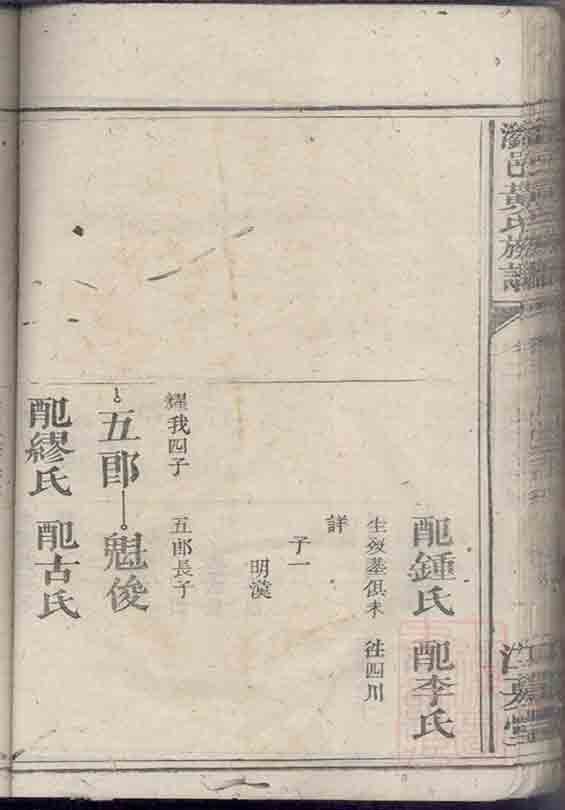 邑黃氏族譜
配鍾氏　配李氏
生歿墓俱未　往四川
詳
子一
明漢
耀我四子　五郎長子
五郎　魁俊
配繆氏　配古氏